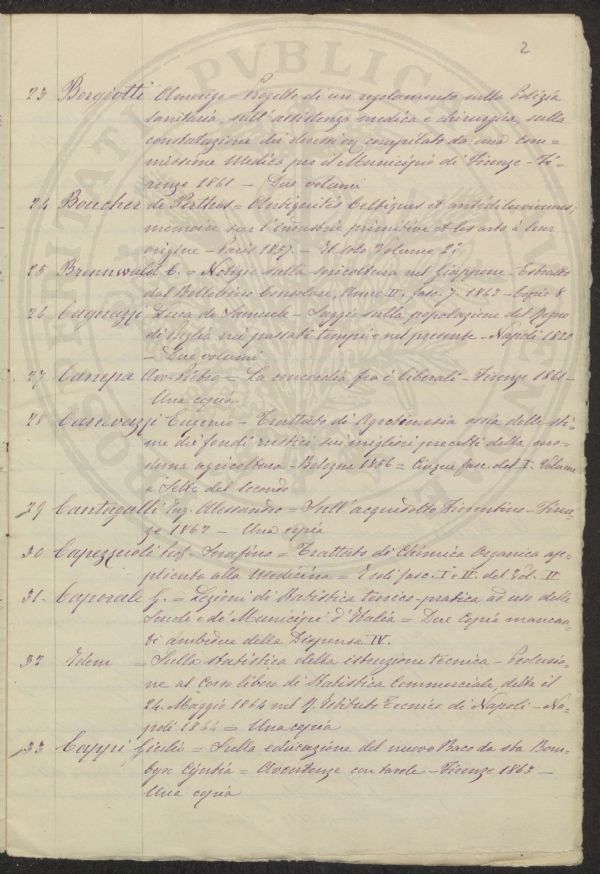 2
23 Borgiotti Amerigo = Progetto di un regolamento sulla Polizia
sanitaria, sull'assistenza medica e chirurgica, sulla
constatazione dei decessi ec compilato da una com=
missione Medica per il Municipio di Firenze - Fi=
renze 1861 - Due volumi
24 Boucher de Perthes = Antiquités Celtiques et antédiluviennes,
memoire sur l'industrie primitive et les arts à leur
origine - Paris 1857. - Il solo Volume 2º
25 Brennwald C. = Notizie sulla sericoltura nel Giappone - Estratto
dal Bollettino Consolare, Anno II. fasc. 7. 1863 - Copie 8
26 Cagnazzi Luca de Samuele - Saggio sulla popolazione del Regno
di Puglia nei passati tempi e nel presente - Napoli 1820
- Due volumi
27 Canepa Avv. Pietro = La concordia fra i liberali - Firenze 1861 -
Una copia
28 Canevazzi Eugenio - Trattato di Agrotimesia ossia delle sti=
me dei fondi rustici sui migliori precetti della mo=
derna agricoltura - Bologna 1856 = Cinque fasc. del I. Volume
e Sette del secondo
29 Cantagalli Ing. Alessandro = Sull'acquedotto Fiorentino - Firen=
ze 1862 - Una copia
30 Capezzuoli Prof. Serafino = Trattato di Chimica Organica ap=
plicata alla Medicina = I soli fasc. I e II. del Vol. II.
31. Caporale G. = Lezioni di Statistica teorico-pratica ad uso delle
Scuole e de' Municipi d'Italia = Due copie mancan=
ti ambedue della Dispensa IV.
32 Idem = Sulla statistica della istruzione tecnica - Prolusio=
ne al Corso libero di Statistica Commerciale, detta il
24. Maggio 1864 nel R. Istituto Tecnico di Napoli - Na=
poli 1864 = Una copia
33 Cappi Giulio = Sulla educazione del nuovo Baco da seta Bom=
byx Cynthia = Avvertenze con tavole - Firenze 1863 -
Una copia